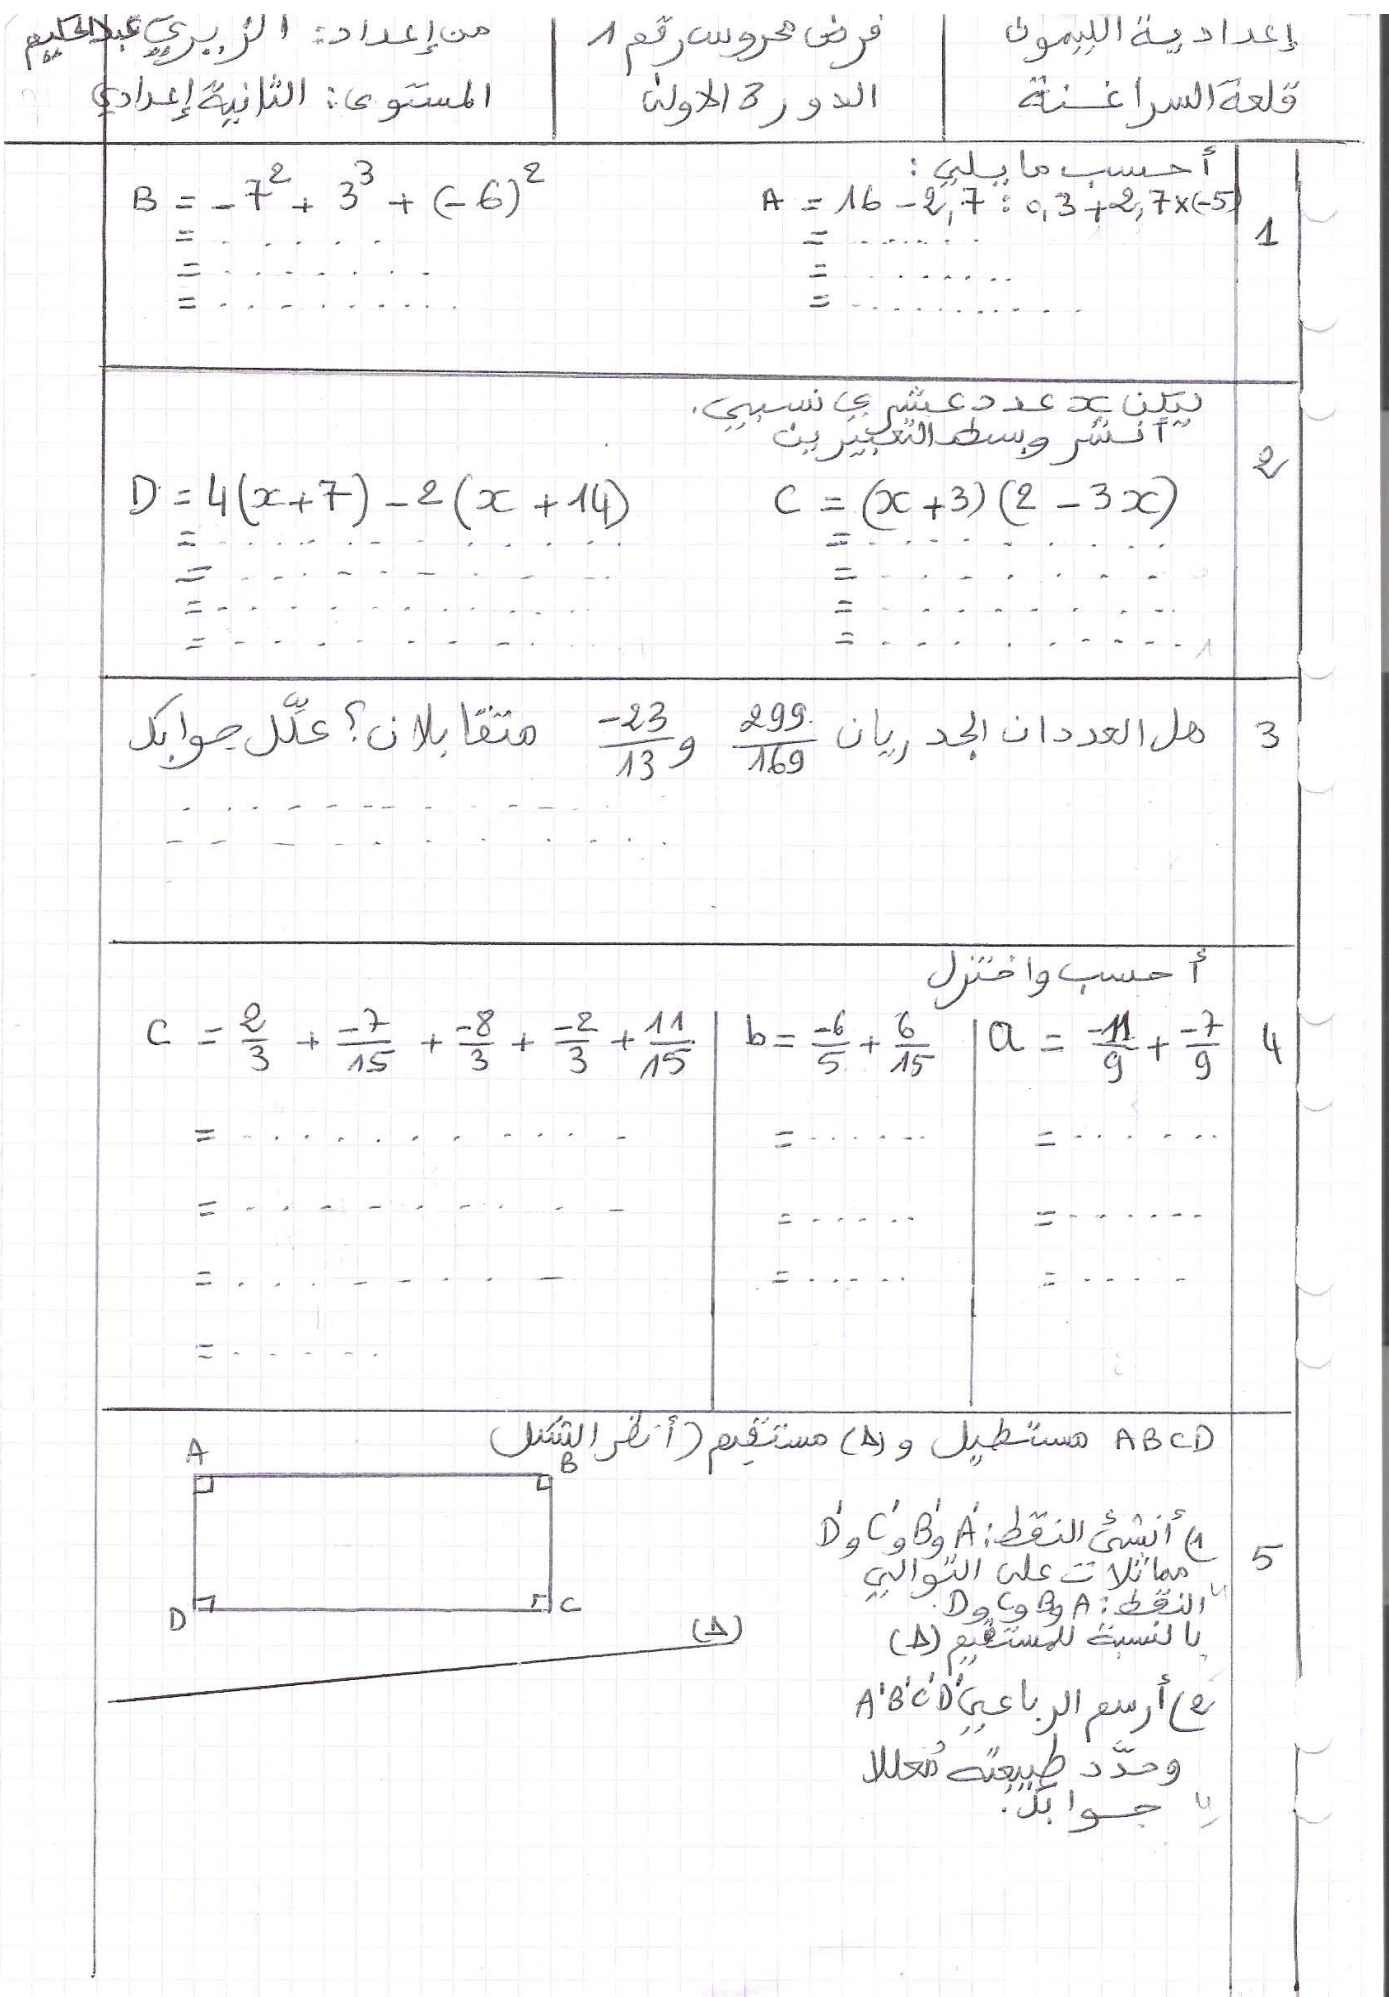 إعدادية الليمون
قلعة السراغنة
فرض محروس رقم 1
الدورة الاولى
من إعداد: الزبيري عبدالحكيم
المستوى: الثانية إعدادي
1
أحسب ما يلي:
A = 16 - 2,7 : 0,3 + 2,7 × (-5)
= ........
= ........
= ........
B = -7² + 3³ + (-6)²
= ........
= ........
= ........
2
ليكن x عدد عشري نسبي.
أنشر وبسط التعبيرين
C = (x+3)(2 - 3x)
= ........
= ........
= ........
= ........
D = 4(x+7) - 2(x + 14)
= ........
= ........
= ........
= ........
3
هل العددان الجدريان 299/169 و -23/13 متقابلان؟ علّل جوابك
........
........
4
أحسب واختزل
a = -11/9 + -7/9
= ........
= ........
= ........
b = -6/5 + 6/15
= ........
= ........
= ........
C = 2/3 + -7/15 + -8/3 + -2/3 + 11/15
= ........
= ........
= ........
= ........
5
ABCD مستطيل و (Δ) مستقيم (أنظر الشكل
1) أنشئ النقط: A' و B' و C' و D'
مماثلات على التوالي
النقط: A و B و C و D
بالنسبة للمستقيم (Δ)
2) أرسم الرباعي A'B'C'D'
وحدّد طبيعته مُعللا
جوابك.
A
B
D
C
(Δ)